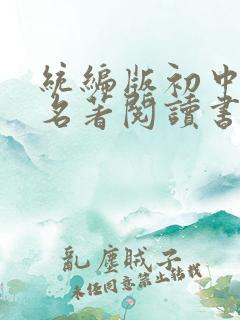 統編版初中
名著閱讀書
亂塵賊子
未经同意禁止转载